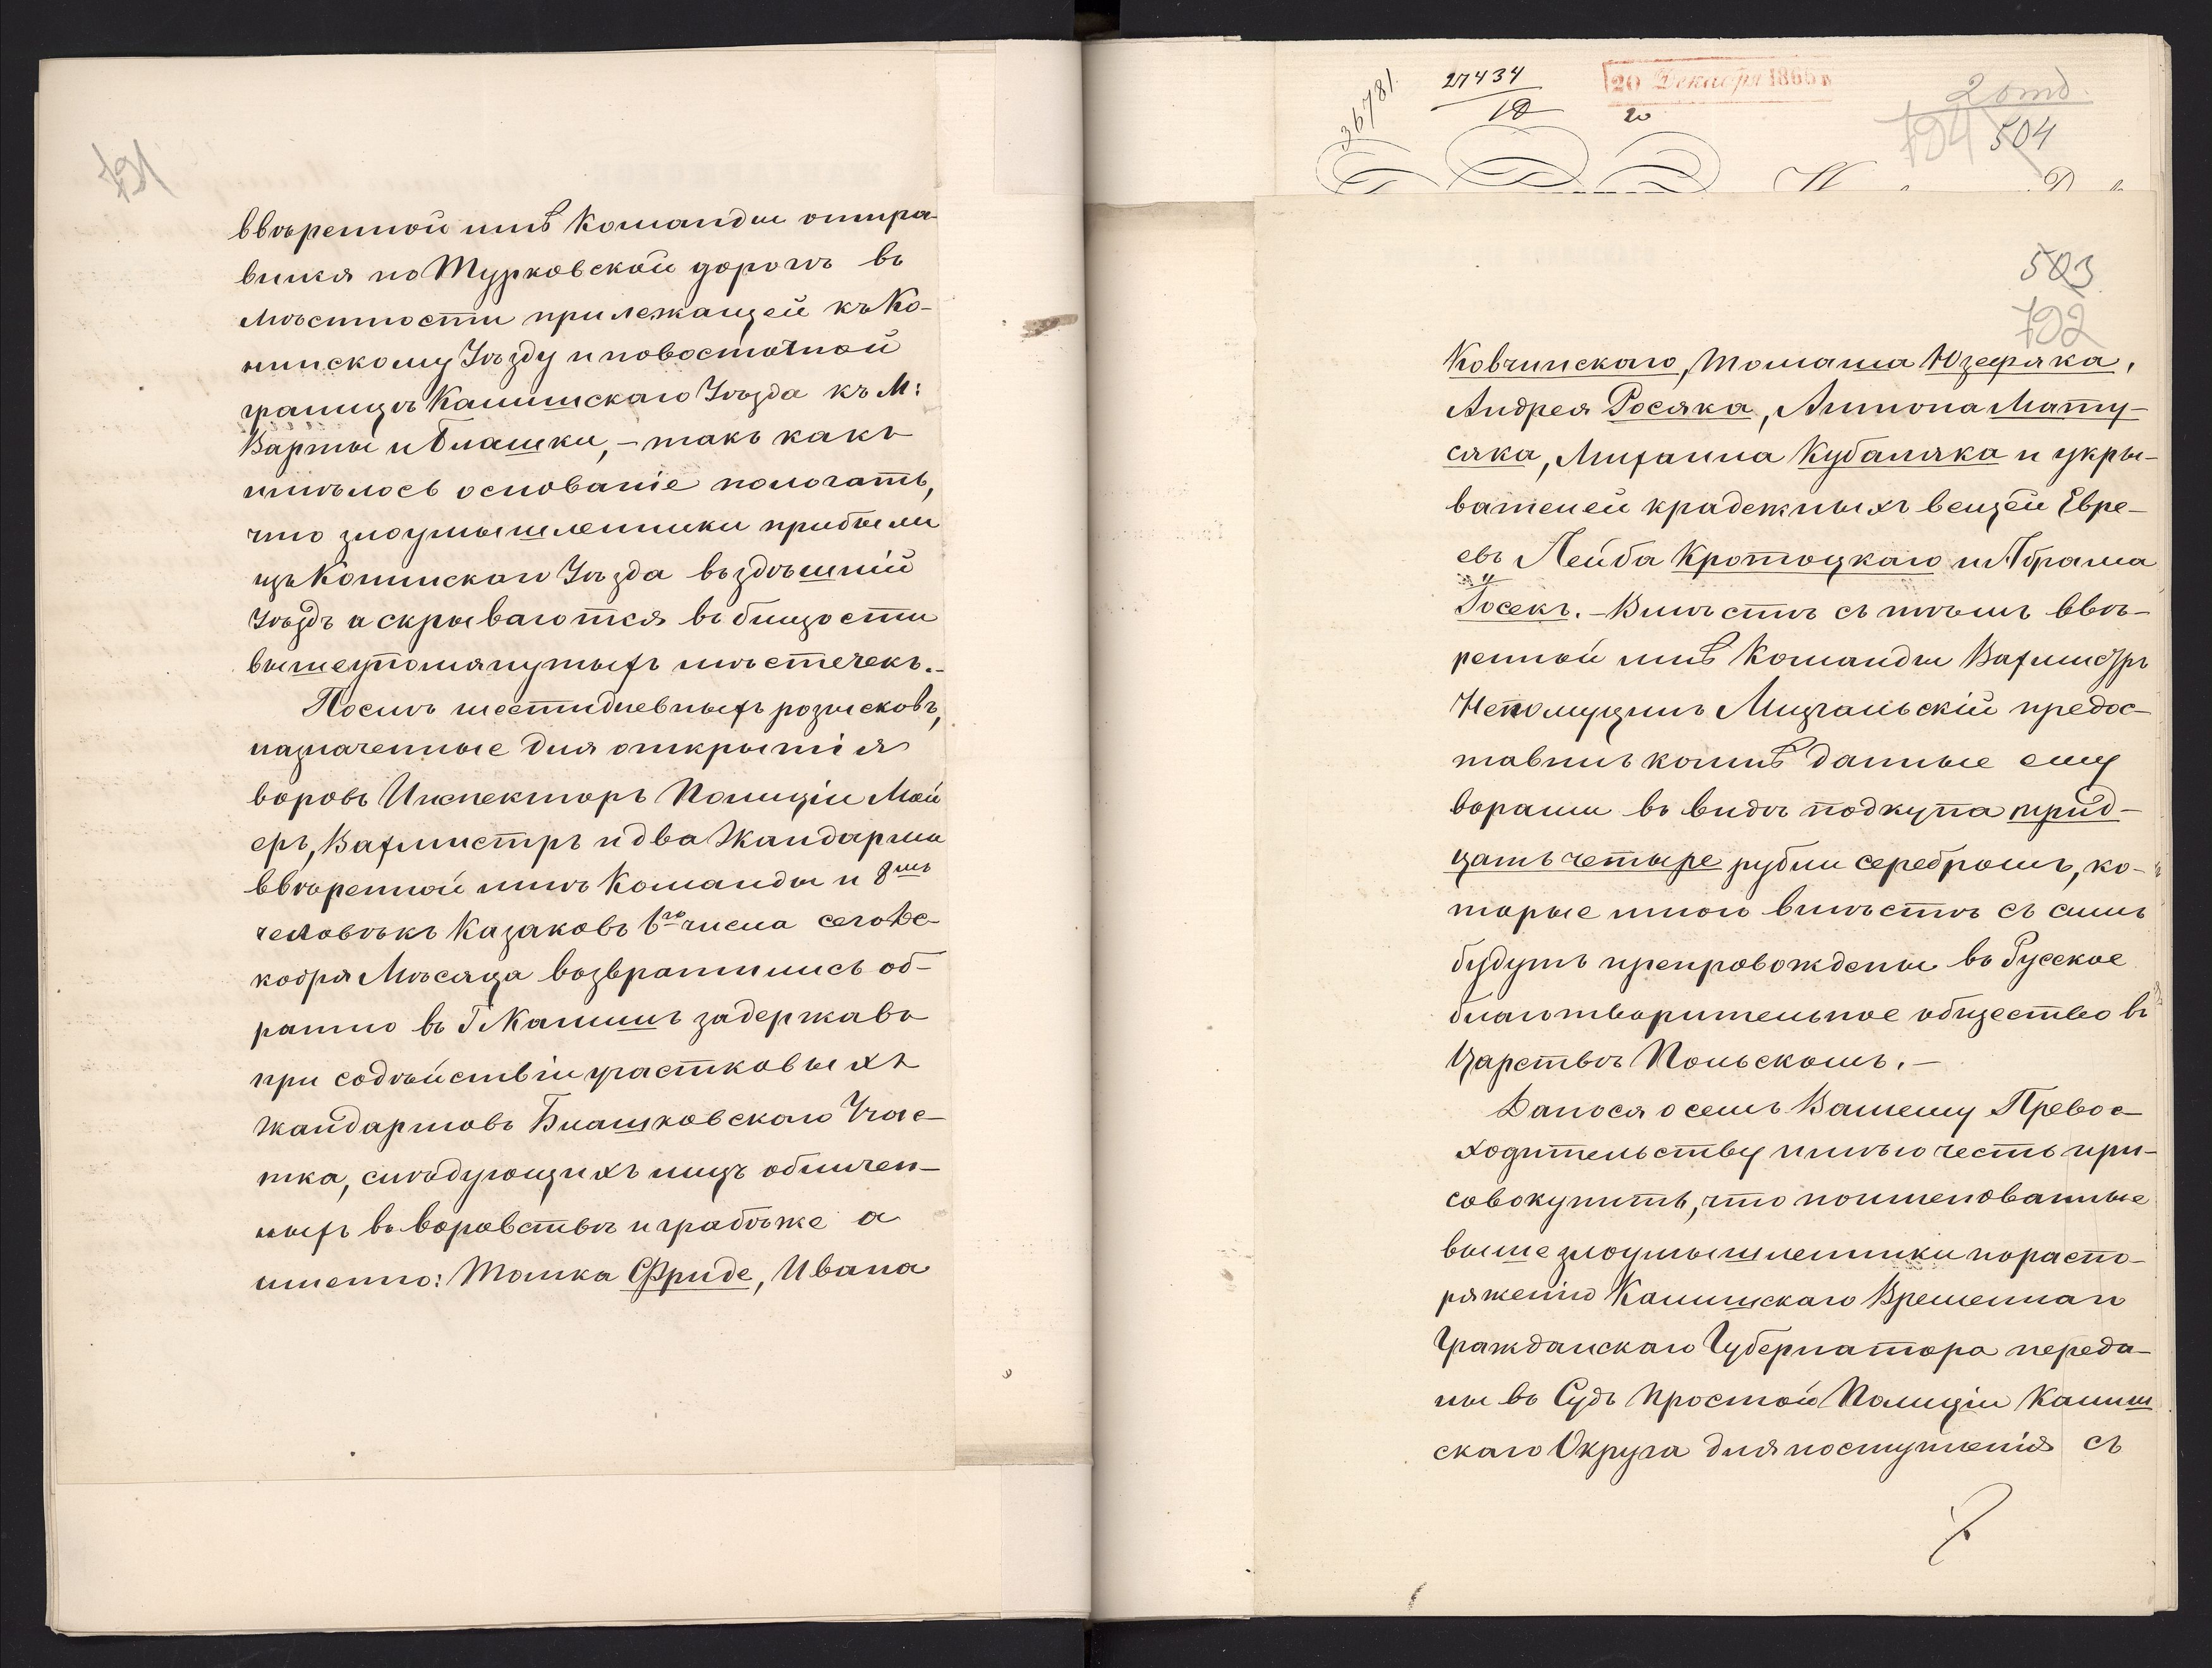 791
ввѣренной мнѣ Команды отпра-
вился по Турковской дорогѣ въ
мѣстности прилежащей къ Ко-
нинскому Уѣзду и по восточной
границѣ Калишскаго Уѣзда къ М:
Варты и Блашки, – такъ какъ
имѣлось основаніе пологать,
что злоумышленники прибыли
изъ Конинскаго Уѣзда въ здѣшній
Уѣздъ и скрываются въ близости
вышеупомянутыхъ мѣстечекъ. –
Послѣ шестидневныхъ розысковъ,
назначенные для открытія
воровъ Инспекторъ Полиціи Мей
еръ, Вахмистръ и два Жандарма
ввѣренной мнѣ Команды и 8мь
человѣкъ Казаковъ 6го числа сего Де-
кабря Мѣсяца возвратились об-
ратно въ Г Калишъ задержавъ
при содѣйствіи участковыхъ
жандармовъ Блашковскаго Учас-
тка, слѣдующихъ лицъ обличен-
ныхъ въ воровствѣ и грабѣже а
именно: Томка Фриде, Ивана
36781
27434
18
20 Декабря 1865 г
20
2 отд.
794 504
503
792
Ковчинскаго, Томаша Юзефяка,
Андрея Росяка, Антона Мату-
сяка, Михаила Кубаляка и укры-
вателей краденныхъ вещей Евре-
евъ Лейба Кротоцкаго и Абрама
Госекъ. – Вмѣстѣ съ тѣмъ ввѣ-
ренной мнѣ Команды Вахмистръ
Непомуцинъ Мизгальскій предос-
тавилъ ко мнѣ данные ему
ворами въ видѣ подкупа трид-
цать четыре рубли серебромъ, ко-
торые мною вмѣстѣ съ симъ
будутъ препровождены въ Русское
благотворительное общество въ
Царствѣ Польскомъ. –
Донося о семъ Вашему Превос-
ходительству имѣю честь при-
совокупить, что поименованные
выше злоумышленники по распо-
ряженію Калишскаго Временнаго
Гражданскаго Губернатора переда-
ны въ Судъ Простой Полиціи Калиш
скаго Округа для поступленія съ